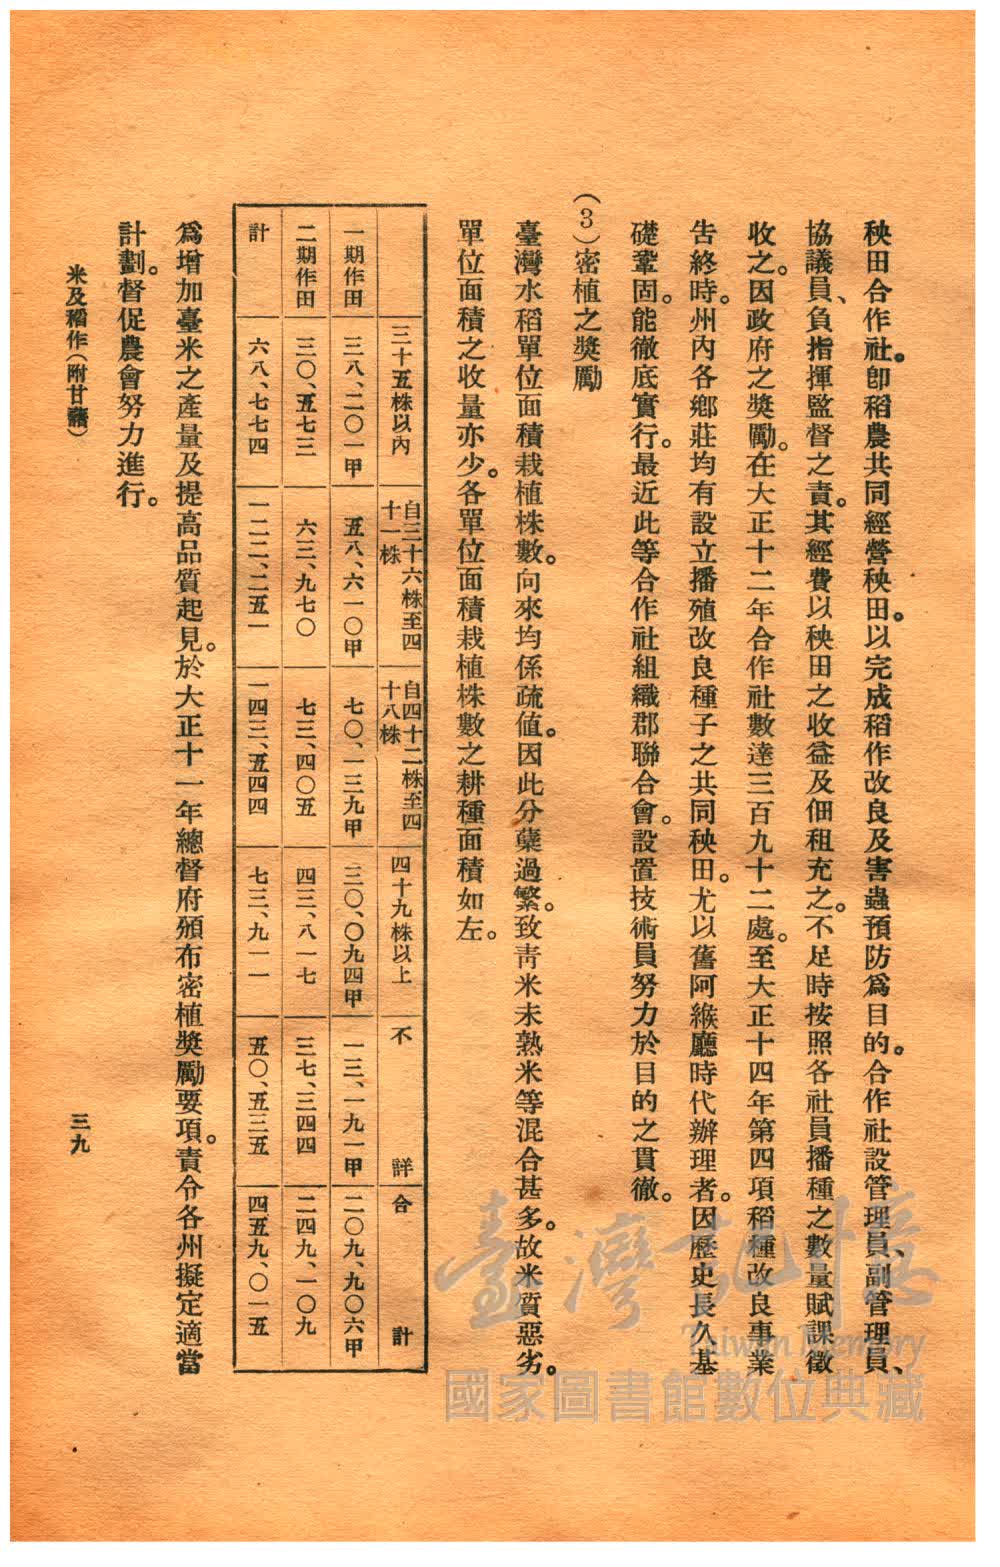 秧田合作社。卽稻農共同經營秧田。以完成稻作改良及害蟲預防爲目的。合作社設管理員、副管理員、
協議員、負指揮監督之責。其經費以秧田之收益及佃租充之。不足時按照各社員播種之數量賦課徵
收之。因政府之獎勵。在大正十二年合作社數達三百九十二處。至大正十四年第四項稻種改良事業
告終時。州內各鄉莊均有設立播殖改良種子之共同秧田。尤以舊阿緱廳時代辦理者。因歷史長久基
礎鞏固。能徹底實行。最近此等合作社組織郡聯合會。設置技術員努力於目的之貫徹。
(3)密植之獎勵
臺灣水稻單位面積栽植株數。向來均係疏値。因此分蘗過繁。致靑米未熟米等混合甚多。故米質惡劣。
單位面積之收量亦少。各單位面積栽植株數之耕種面積如左。
三十五株以內 自三十六株至四十一株 自四十二株至四十八株 四十九株以上 不詳 合計
一期作田 三八、二〇一甲 五八、六一〇甲 七〇、一三九甲 三〇、〇九四甲 一三、一九一甲 二〇九、九〇六甲
二期作田 三〇、五七三 六三、九七〇 七三、四〇五 四三、八一七 三七、三四四 二四九、一〇九
計 六八、七七四 一二二、二五一 一四三、五四四 七三、九一一 五〇、五三五 四五九、〇一五
爲增加臺米之產量及提高品質起見。於大正十一年總督府頒布密植獎勵要項。責令各州擬定適當
計劃。督促農會努力進行。
米及稻作(附甘藷)
三九
臺灣記憶
Taiwan Memory
國家圖書館數位典藏